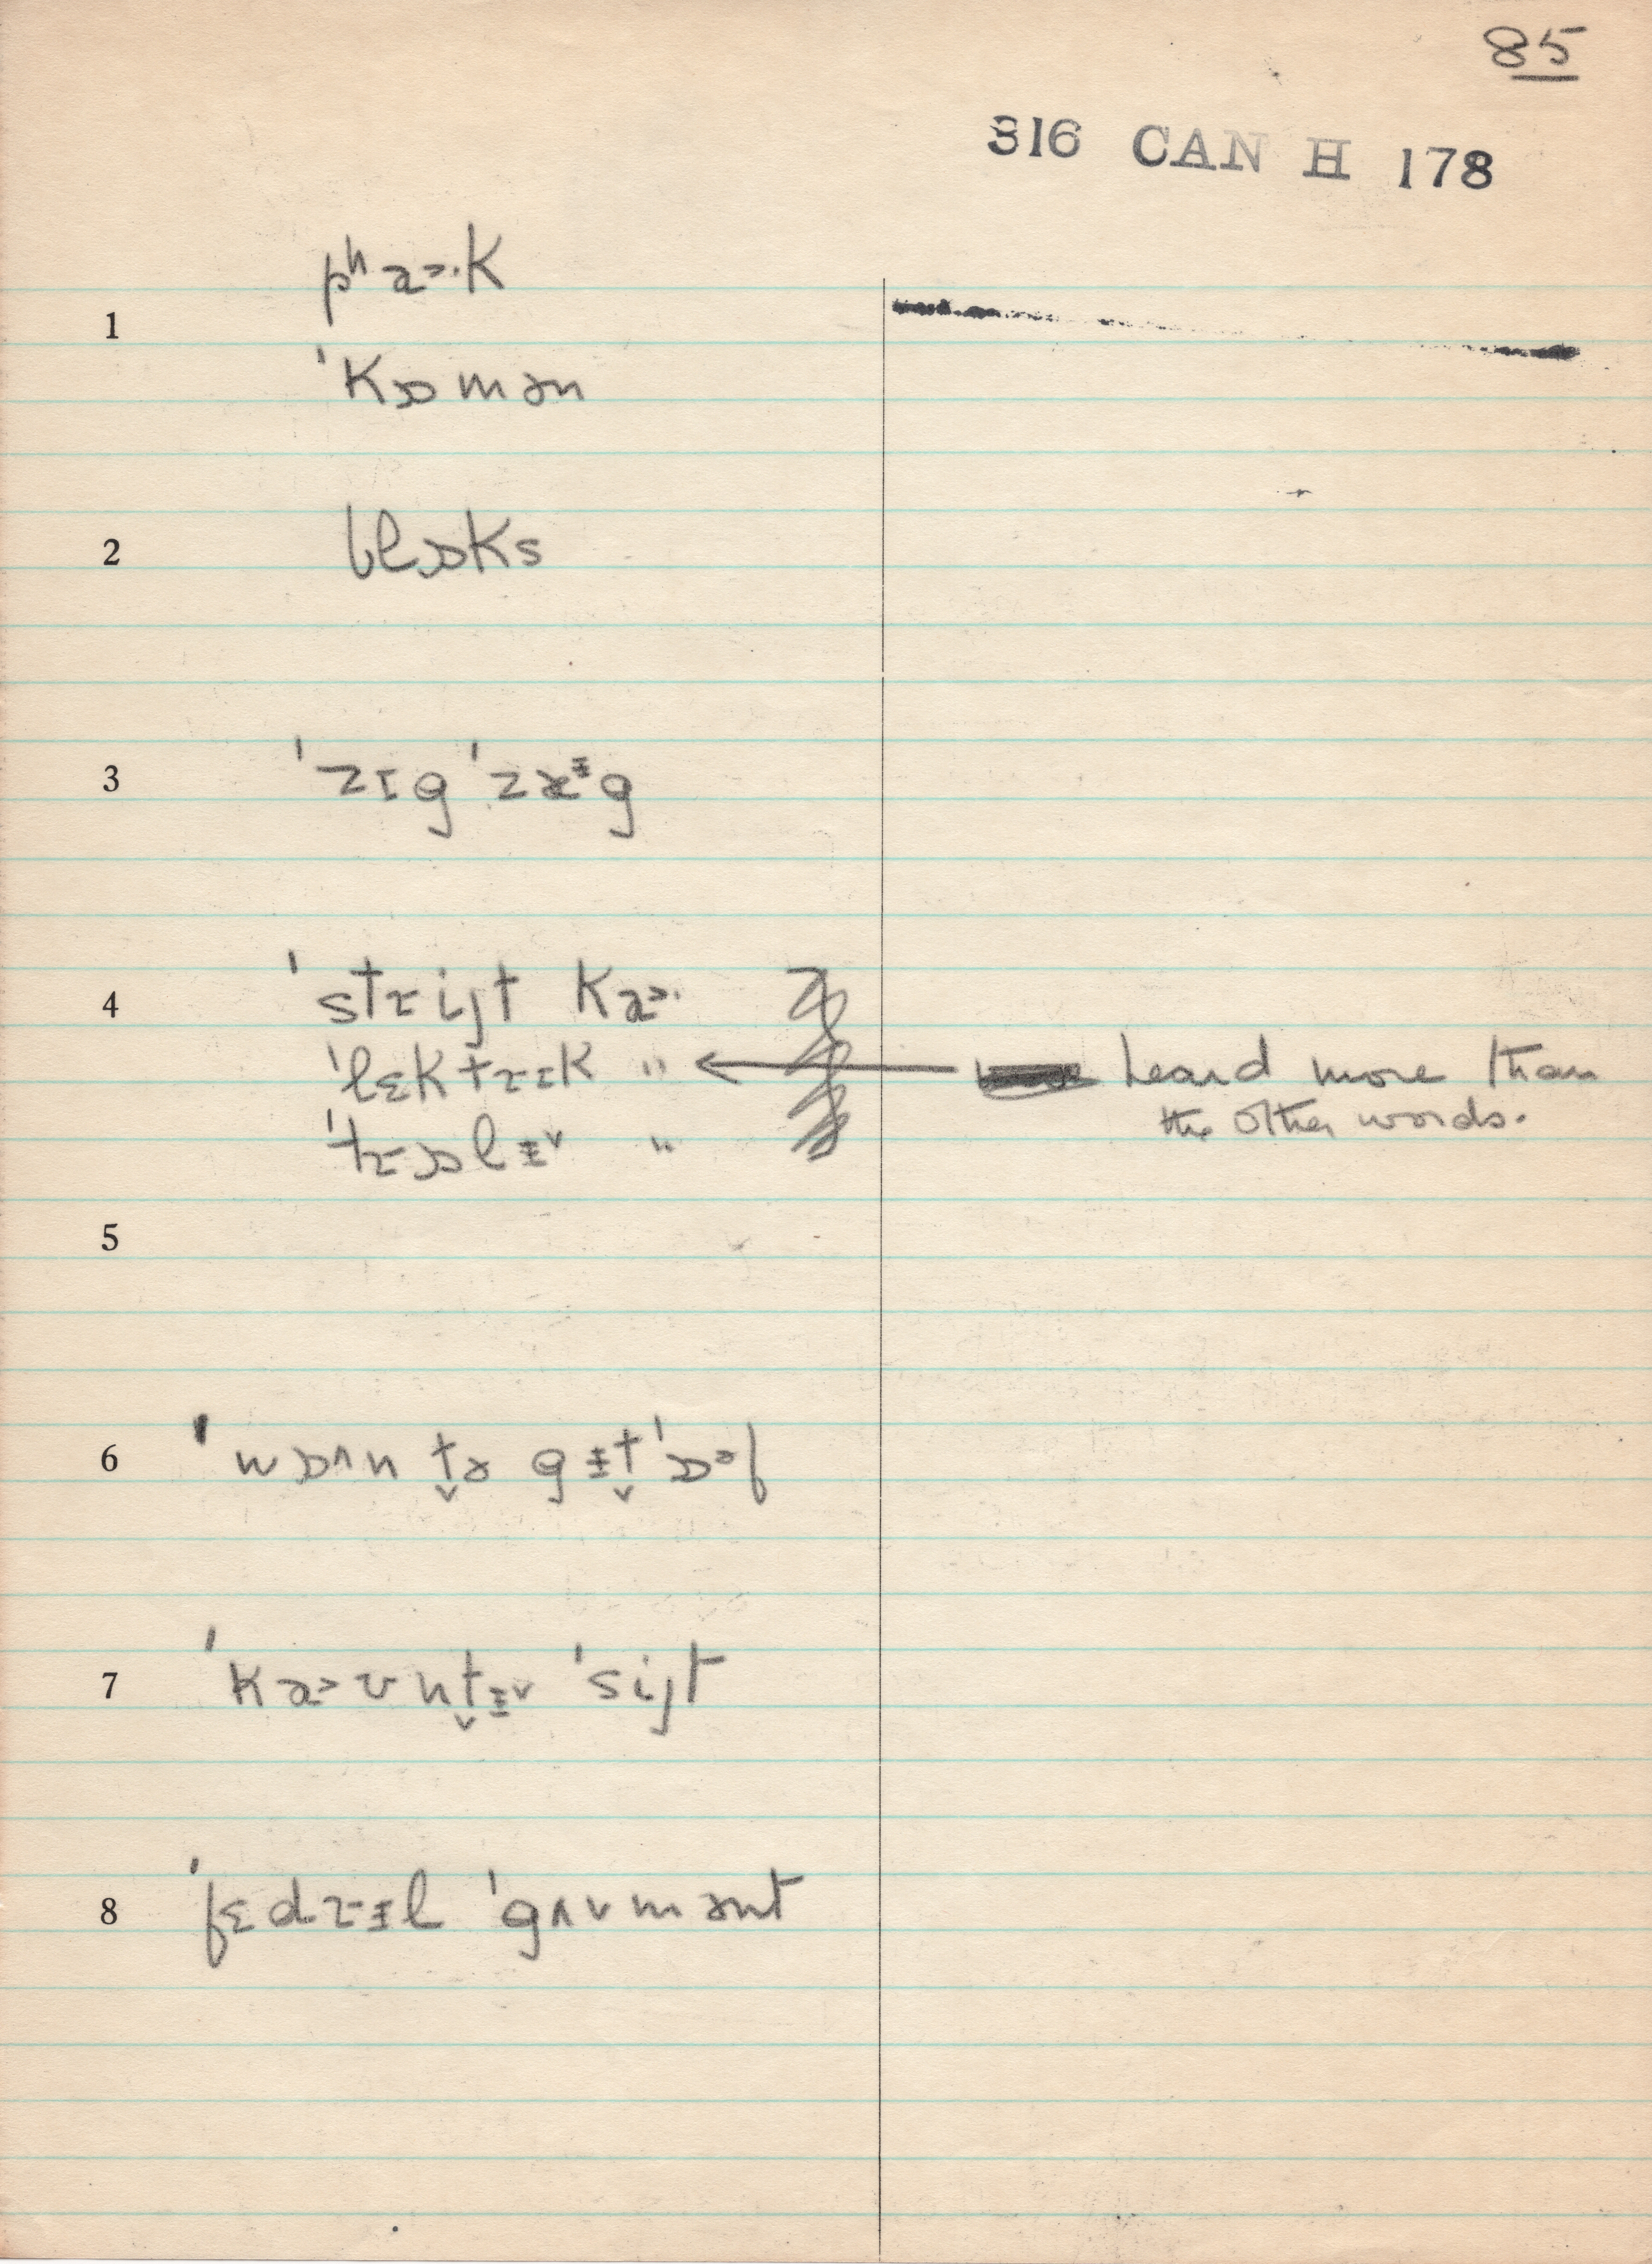 85
316 CAN H 178
pʰa>·k
1
ˈkɒmən
2 blɒks
3 ˈzɪgˈzæᵻg
4 ˈstɹijt ka>·
ˈlɛktɹɪk " ← heard more than
the other words.
ˈtɹɒlᵻ˅ "
5
6 ˈwɒʌn t̬ə gᵻt̬ˈɒ>f
7 ˈka>ʊnt̬ᵻ˅ ˈsijt
8 ˈfɛdɹᵻl ˈgʌvmənt